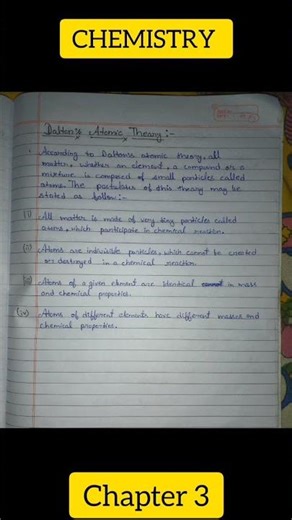 CHEMISTRY
Dalton's Atomic Theory :-
According to Dalton's atomic theory, all
matter, whether an element, a compound or a
mixture is composed of small particles called
atoms. The postulates of this theory may be
stated as follow :-
(i) All matter is made of very tiny particles called
atoms, which participate in chemical reaction.
(ii) Atoms are indivisible particles, which cannot be created
or destroyed in a chemical reaction.
(iii) Atoms of a given element are identical in mass
and chemical properties.
(iv) Atoms of different elements have different masses and
chemical properties.
Chapter 3